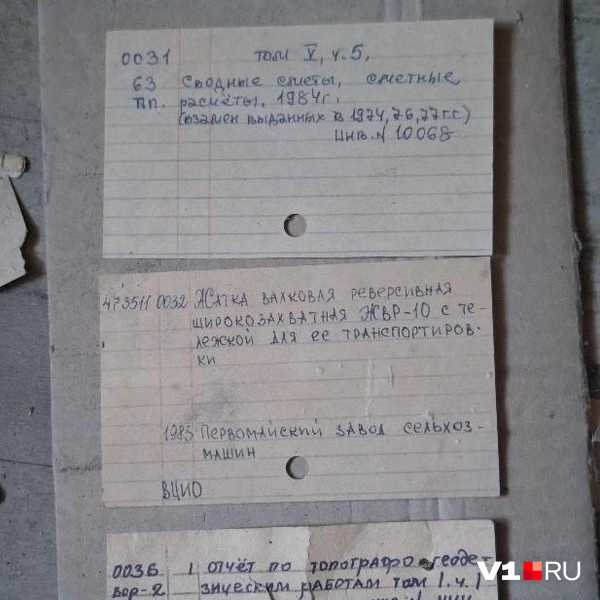 0031 том V, ч. 5,
63 Сводные сметы, сметные
пп. расчёты. 1984г.
(взамен выданных в 1974, 76, 77 г.г.)
инв. N 10068
473511 0032 Жатка валковая реверсивная
широкозахватная ЖВР-10 с те-
лежкой для ее транспортиров-
ки
1985 Первомайский завод сельхоз-
машин
ВЦИО
0036 1 Отчёт по топографо-геодет
вор-2 зическим работам том I. ч. I
V1.RU